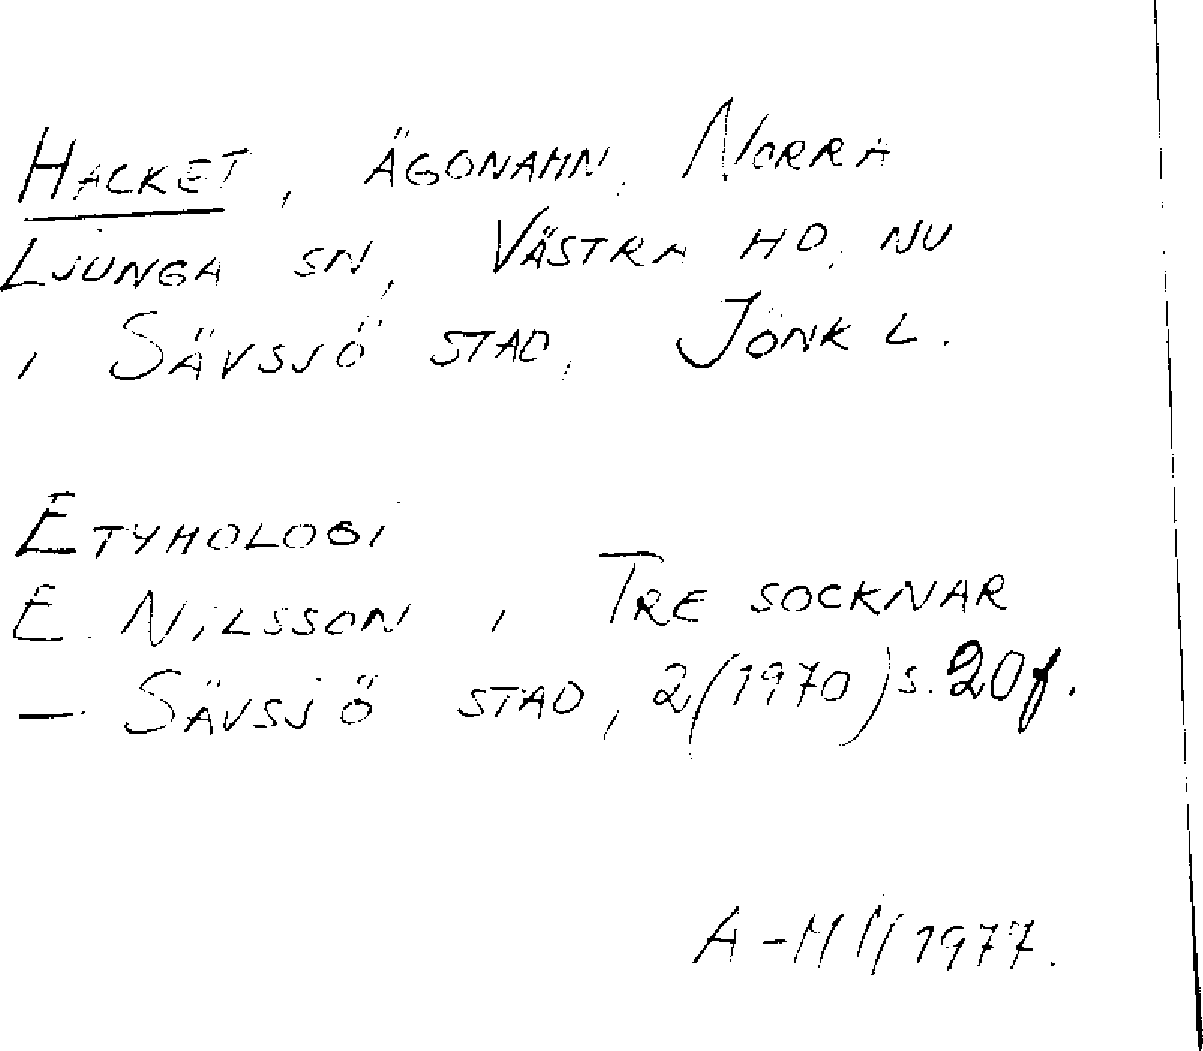 HACKET, ÄGONAMN, NORRA
LJUNGA SN, VÄSTRA HD, NU
I SÄVSJÖ STAD, JÖNK L.
ETYMOLOGI
E. NILSSON I TRE SOCKNAR
— SÄVSJÖ STAD, 2(1970) s. 20f.
A-M 1977.